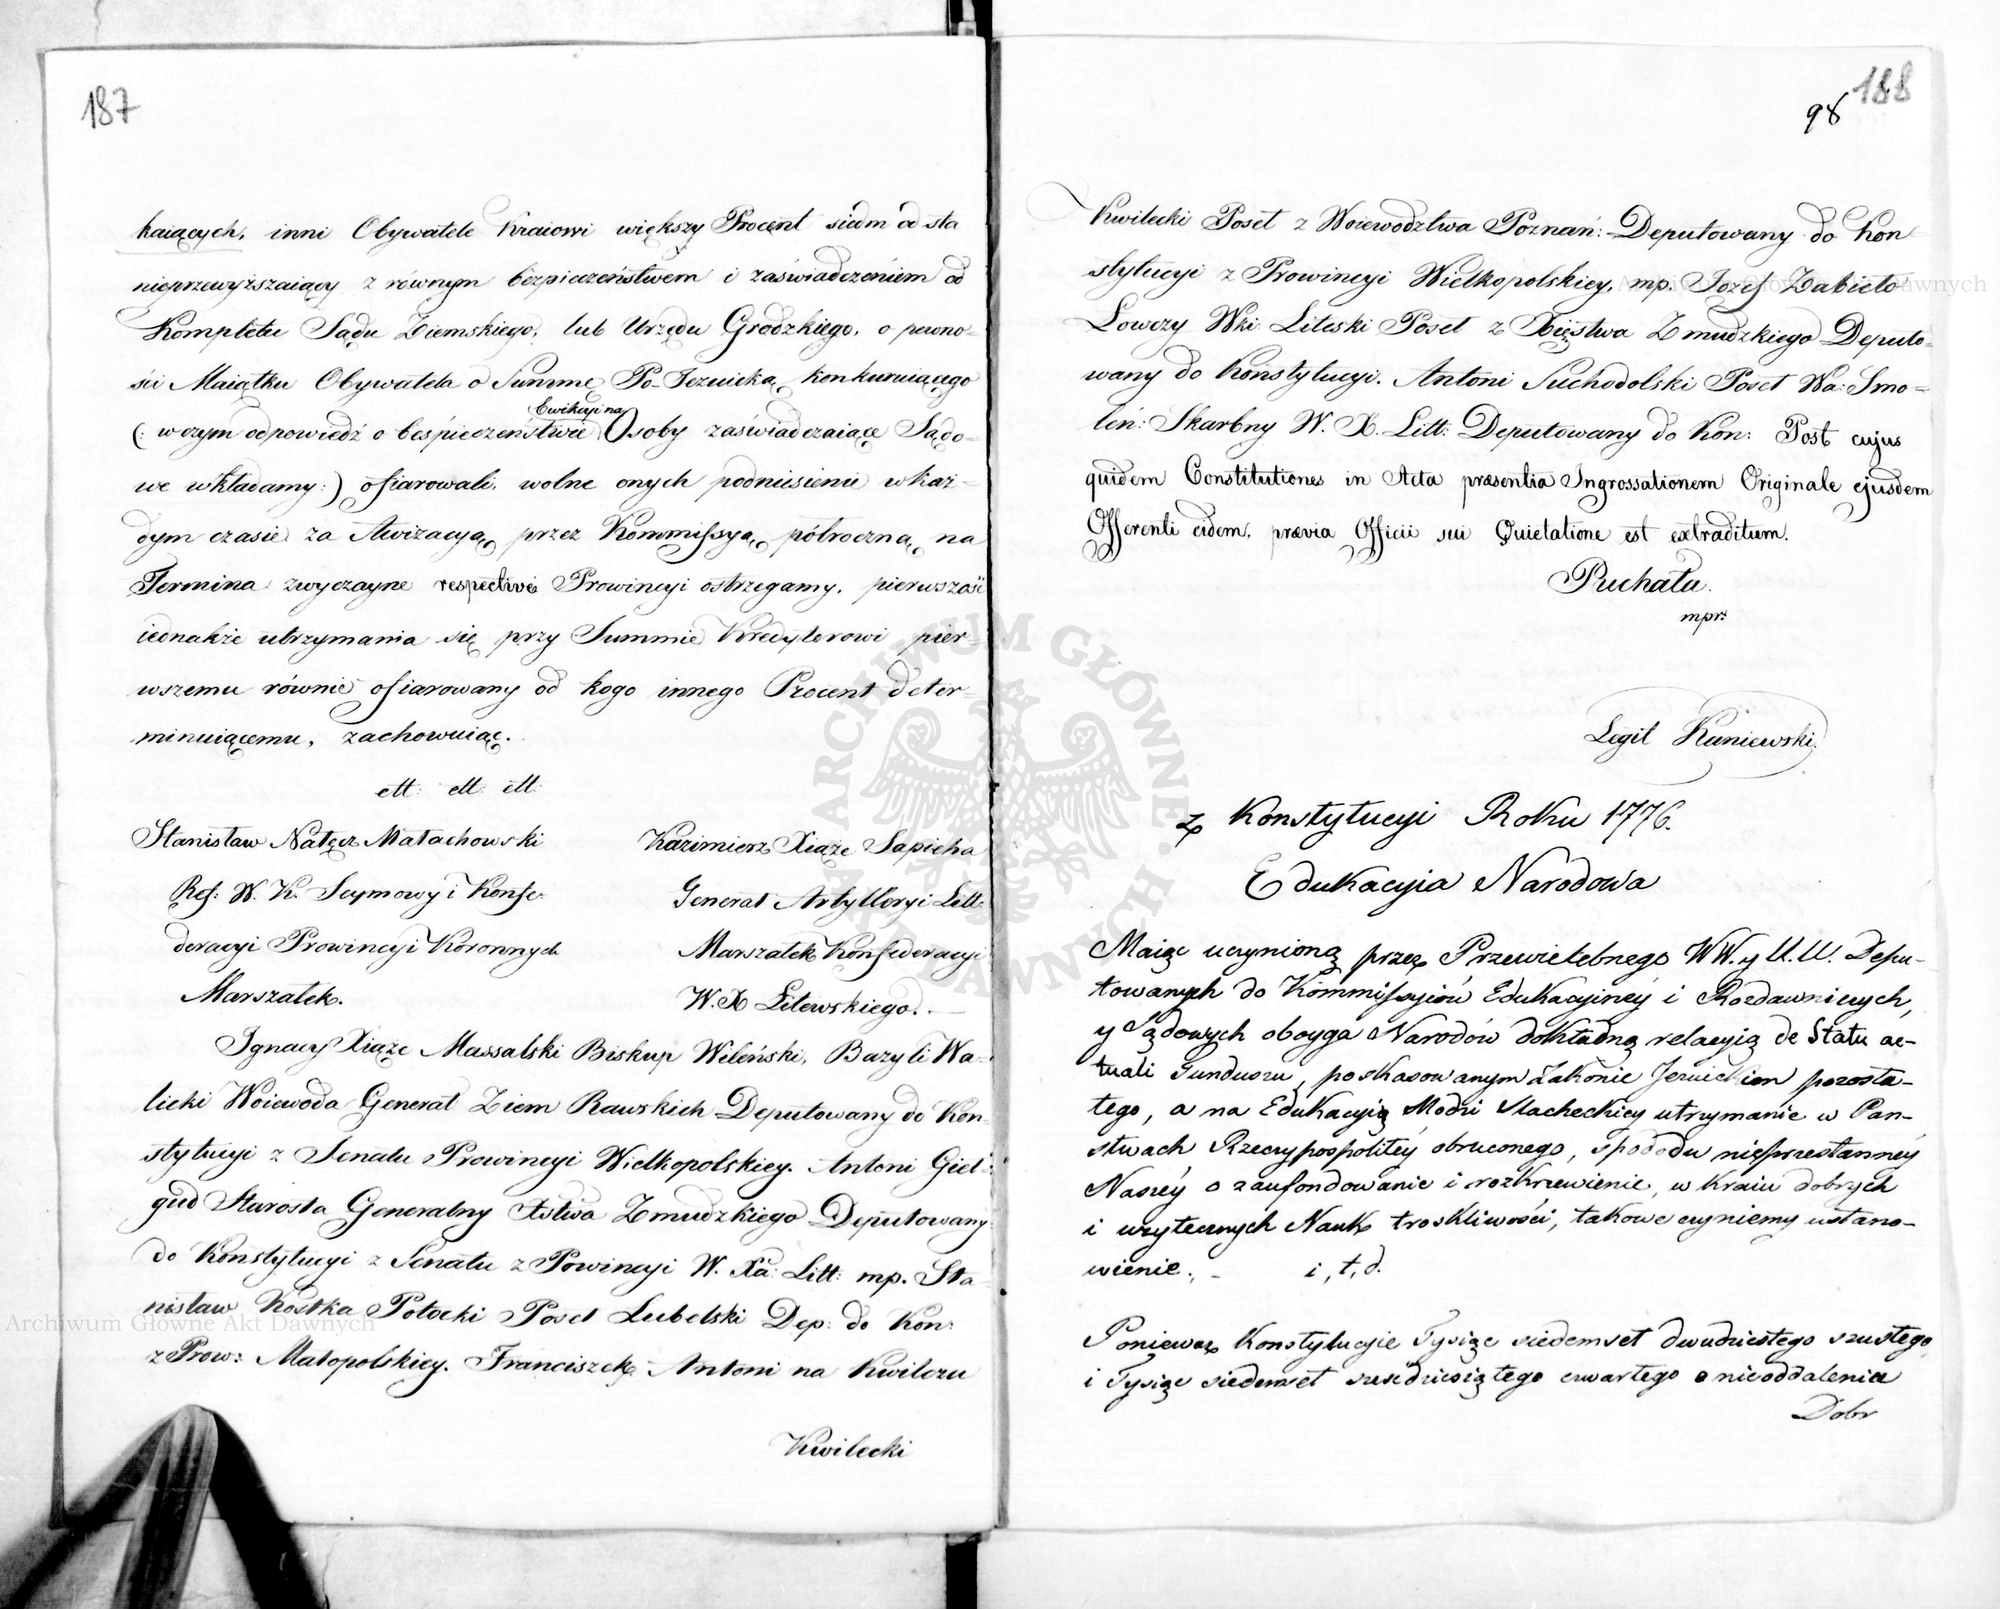 187
kaiących, inni Obywatele Kraiowi większy Procent siedm od sta
nieprzewyższaiący z równym bezpieczeństwem i zaświadczeniem od
Kompletu Sądu Ziemskiego, lub Urzędu Grodzkiego, o pewno-
ści Maiątku Obywatela o Summę Po-Jezuicką konkuruiącego
Ewikcyi na
(: w czym odpowiedź o bespieczeństwie Osoby zaświadczaiące Sądo-
we wkładamy :) ofiarowali, wolne onych podniesienie w każ-
dym czasie za Awizacyą, przez Kommissyą, półroczną, na
Termina zwyczayne respective Prowincyi ostrzegamy, pierwszość
iednakże utrzymania się przy Summie Kredytorowi pier-
wszemu równie ofiarowany od kogo innego Procent deter-
minuiącemu, zachowuiąc.
ett: ett: ett:
Stanisław Nałęcz Małachowski
Ref: W. K. Seymowy i Konfe-
deracyi Prowincyi Koronnych
Marszałek.
Kazimierz Xiąże Sapieha
Generał Artylleryi Litt:
Marszałek Konfederacyi
W. X Litewskiego. —
Ignacy Xiąże Massalski Biskup Wileński, Bazyli Wa-
licki Woiewoda Generał Ziem Rawskich Deputowany do Kon-
stytucyi z Senatu Prowincyi Wielkopolskiey. Antoni Gieł-
gud Starosta Generalny Xstwa Zmudzkiego Deputowany
do Konstytucyi z Senatu z Powincyi W. Xa: Litt: mp. Sta-
nisław Kostka Potocki Poseł Lubelski Dep: do Kon:
z Prow: Małopolskiey. Franciszek Antoni na Kwilczu
Kwilecki
188
98
Kwilecki Poseł z Woiewodztwa Poznań: Deputowany do Kon-
stytucyi z Prowincyi Wielkopolskiey, mp. Jozef Zabieło
Łowczy Wki Liteski Poseł z Xięstwa Zmudzkiego Deputo-
wany do Konstytucyi. Antoni Suchodolski Poseł Wa: Smo-
leń: Skarbny W. X. Litt: Deputowany do Kon: Post cujus
quidem Constitutiones in Acta præsentia Ingrossationem Originale ejusdem
Offerenti eidem, prævia Officii sui Quietatione est extraditum.
Puchała.
mpr:
Legit Kuniewski.
z Konstytucyi Roku 1776.
Edukacyia Narodowa
Maiąc uczynioną przez Przewielebnego WW. y U. U. Depu-
towanych do Kommissyiów Edukacyiney i Rozdawniczych,
y Sądowych oboyga Narodów dokładną relacyią de Statu ac-
tuali Funduszu, poskasowanym Zakonie Jezuickim pozosta-
łego, a na Edukacyią Młodzi Slacheckiey utrzymanie w Pań-
stwach Rzeczypospolitey obruconego, spododu nieprzestanney
Naszéy o zaufondowanie i rozkrzewienie, w Kraiu dobrych
i użytecznych Nauk troskliwości, takowe czyniemy ustano-
wienie. – i, t, d.
Ponieważ Konstytucyie Tysiąc siedemset dwudziestego szustego
i Tysiąc siedemset sześdziesiątego czwartego o nieoddalenia
Dobr
ARCHIWUM GŁÓWNE AKT DAWNYCH
Archiwum Główne Akt Dawnych